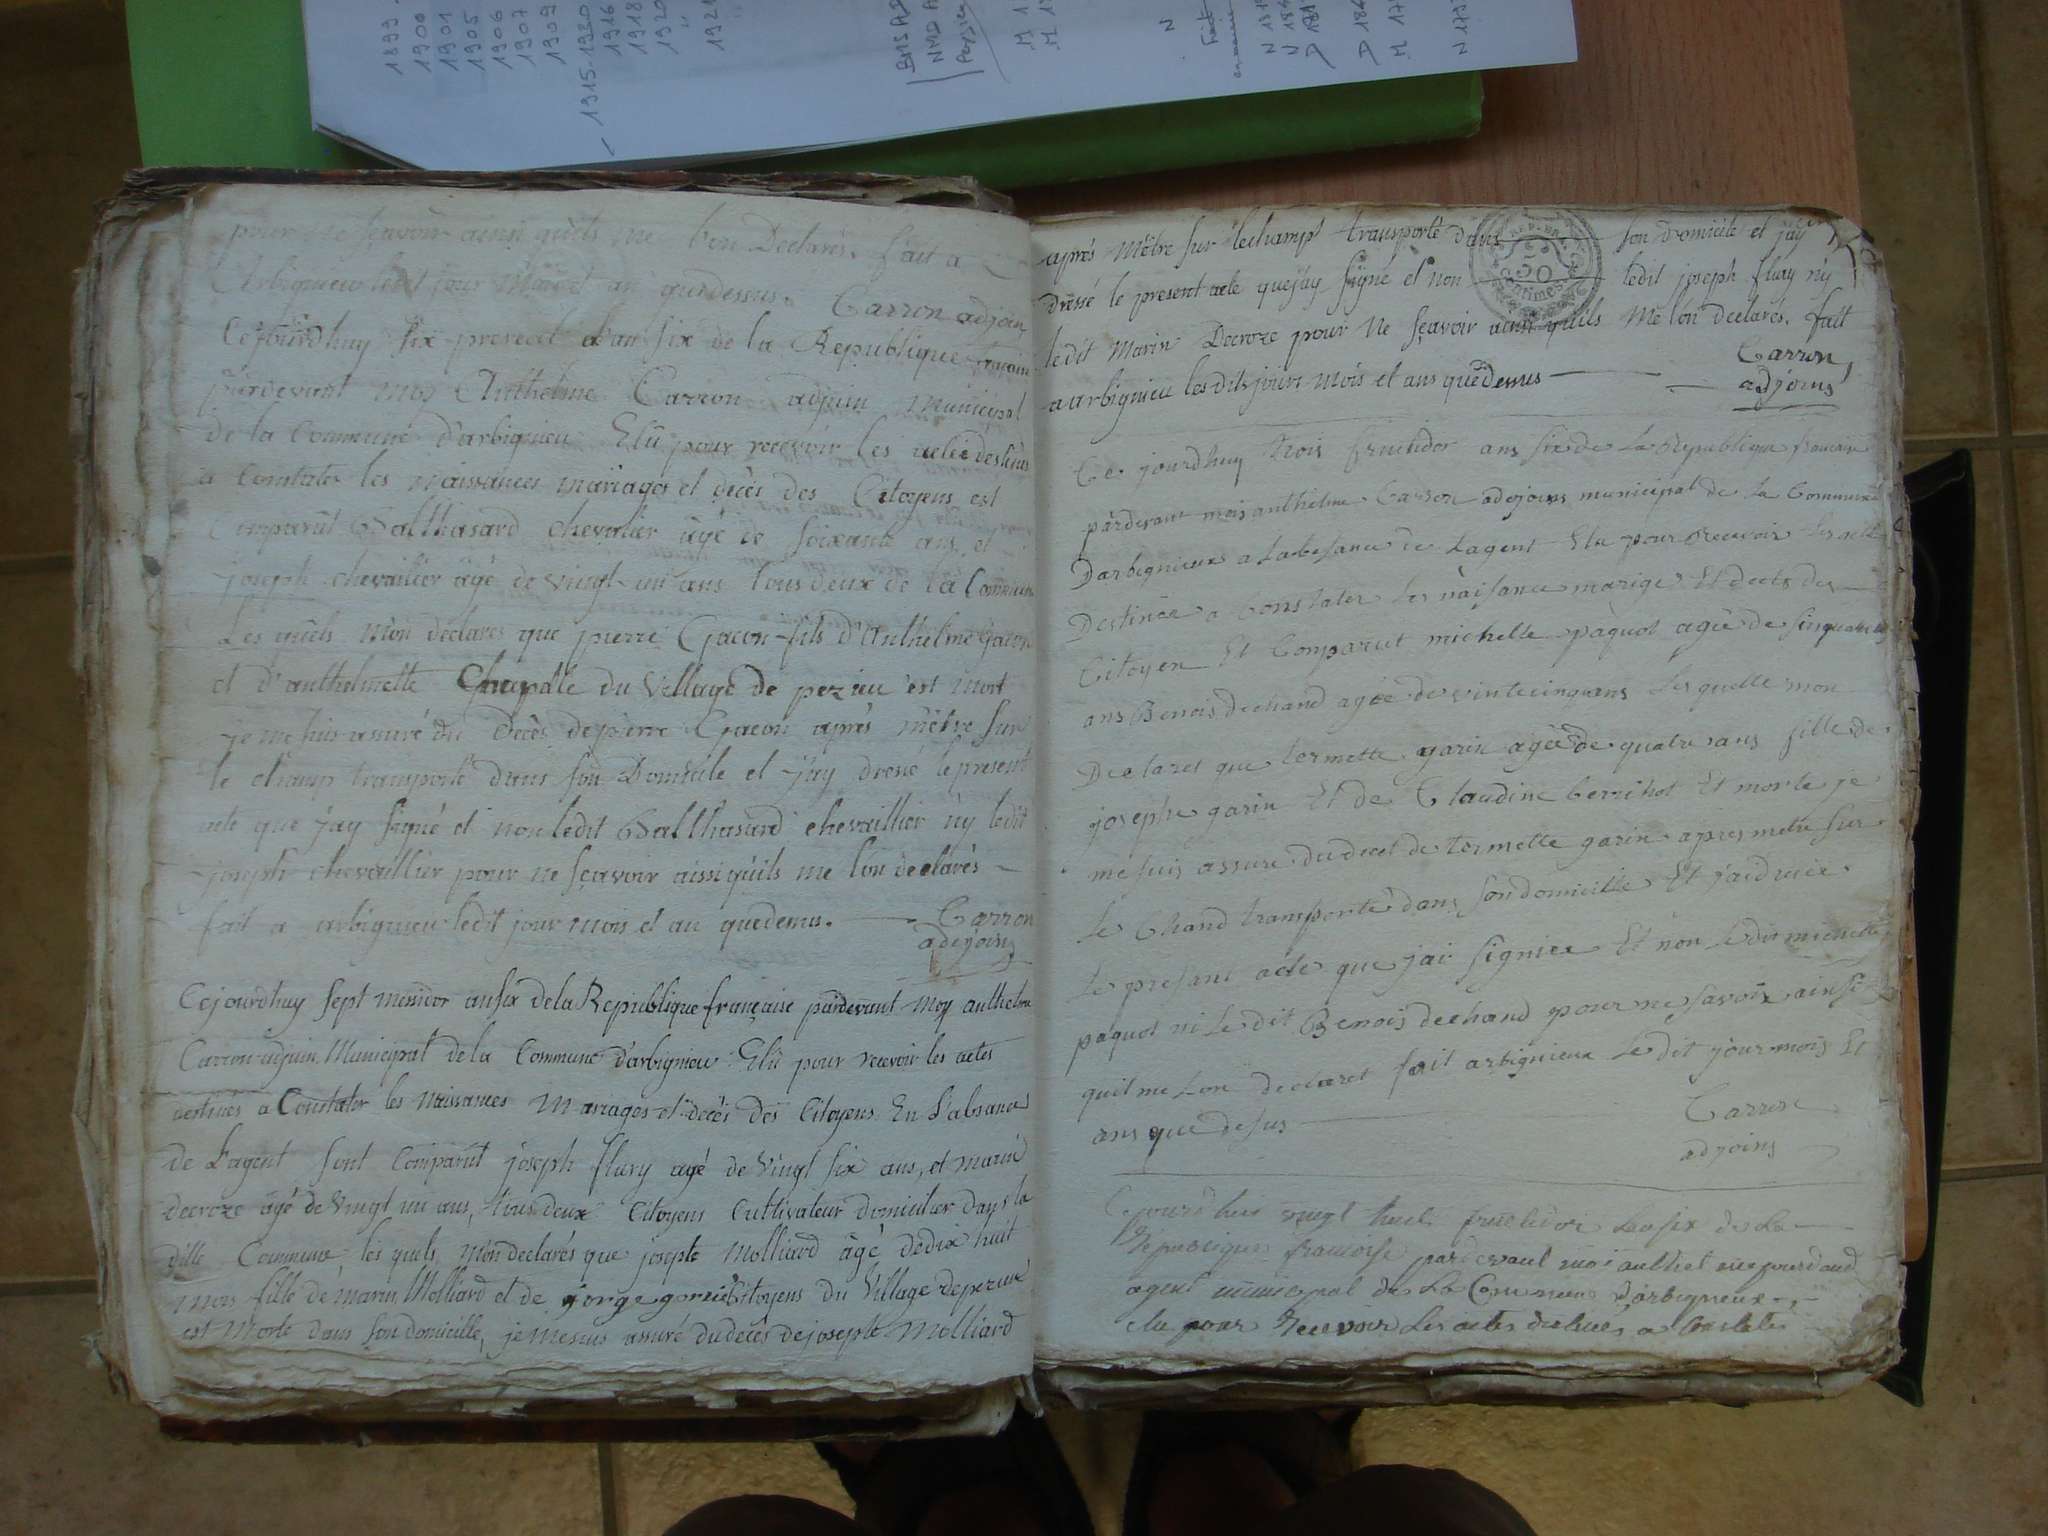 1899
1900
1901
1905
1906
1907
1909
1915-1920
1916
1918
1920
1921
BMS
NMD
N
pour ne sçavoir ainsi quils me lon Declarés. fait a
Arbignieu ledit jour Mois et an que dessus. Carron adjoin
Cejourdhuy six prereal l'an six de la Republique
pardevant moy Anthelme Carron adjoin municipal
de la Commune d'arbignieu Elû pour recevoir les actes destinés
a Constater les Naissances mariages et décès des Citoyens est
Comparût Balthasard chevalier âgé de soixante ans, et
joseph chevaillier âgé de vingt un ans tous deux de la Commune
Les quels m'on déclarés que pierre Gacon fils d'Anthelme Gacon
et d'anthelmette du Village de pezieu est mort
je me suis assuré du Décès de pierre Gacon après m'être sur
le champ transporté dans son Domicile et j'ay dressé le present
acte que j'ay signé et non ledit Balthasard chevaillier n'y ledit
joseph chevaillier pour ne sçavoir ainsi quils me l'on declarés
fait a arbignieu ledit jour mois et an quedessus. Carron
adejoins
Cejourdhuy sept messidor an six de la Republique française pardevant Moy anthelme
Carron adjoin Municipal de la Commune d'arbignieu Elû pour recevoir les actes
destinés a Constater les Naissances Mariages et décès des Citoyens En L'absance
de L'agent sont Comparût joseph flury agé de Vingt six ans, et marin
Decroze âgé de Vingt un ans, tous deux Citoyens Cultivateur domicilier dans la
ditte Commune, les quels, m'on declarés que josepte Molliard âgé de dix huit
mois fille de marin Molliard et de gorge Citoyens du Village de pezieu
est Morte dans son domicille, je me suis assuré du décès de josepte Molliard
après Mêtre sur lechamp transporté dans son domicile et jay
dressé le present acte que jay signé et non ledit joseph flury n'y
ledit Marin Decroze pour ne sçavoir ainsi quils me lon declarés. fait
a arbignieu les dits jours mois et ans quedessus Carron,
adjoins
REP. FRA.
50
Centimes
Ce jourdhuy trois fruictidor ans six de la Republique francaise
pardevant mois anthelme Carron adejoins municipal de la Commune
Darbignieux a Labesance de Lagent Elu pour recevoir les acte
Destinée a Constater les naisance marige Et decés des
Citoyen Et Comparut michelle paquot agée de sinquante
ans Benois dechand agée de vintecinq ans Les quelle mon
Declaret que termette garin agée de quatre ans fille de
josephe garin Et de Claudine berrihot Et morte je
me suis assure du decet de termette garin apres metre sur
Le Chand transporté dans son domicille Et j'ai
Le presant acte que jai signiee Et non Le dit michelle
paquot ni Le dit Benois dechand pour ne savoir ainsi
quil me Lon declaret fait arbignieux Le dit jour mois Et
ans que desus Carron
adjoins
Cejourdhui vingt huit fructidor Lan six de La
Republique francoise pardevant moi anthelme jourdand
agent municipal de La Commune Darbignieux
elu pour Recevoir Les actes destinés a Constater